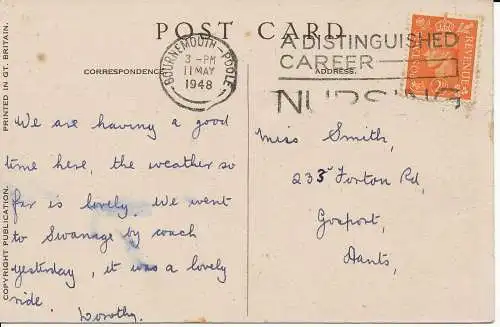 POST CARD
CORRESPONDENCE
ADDRESS.
BOURNEMOUTH-POOLE
3 - PM
11 MAY
1948
A DISTINGUISHED
CAREER
NURSING
REVENUE
PRINTED IN GT. BRITAIN.
COPYRIGHT PUBLICATION.
We are having a good
time here, the weather so
far is lovely. We went
to Swanage by coach
yesterday, it was a lovely
ride.
Dorothy.
Miss Smith,
235 Forton Rd,
Gosport,
Hants,